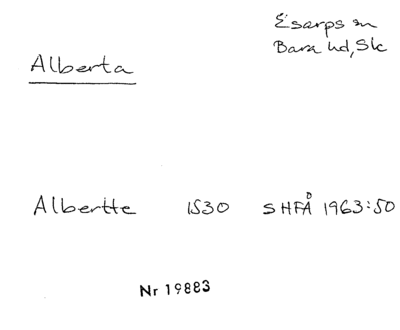 Esarps sn
Bara hd, Skc
Alberta
Albertte 1530 SHFÅ 1963:50
Nr 19883